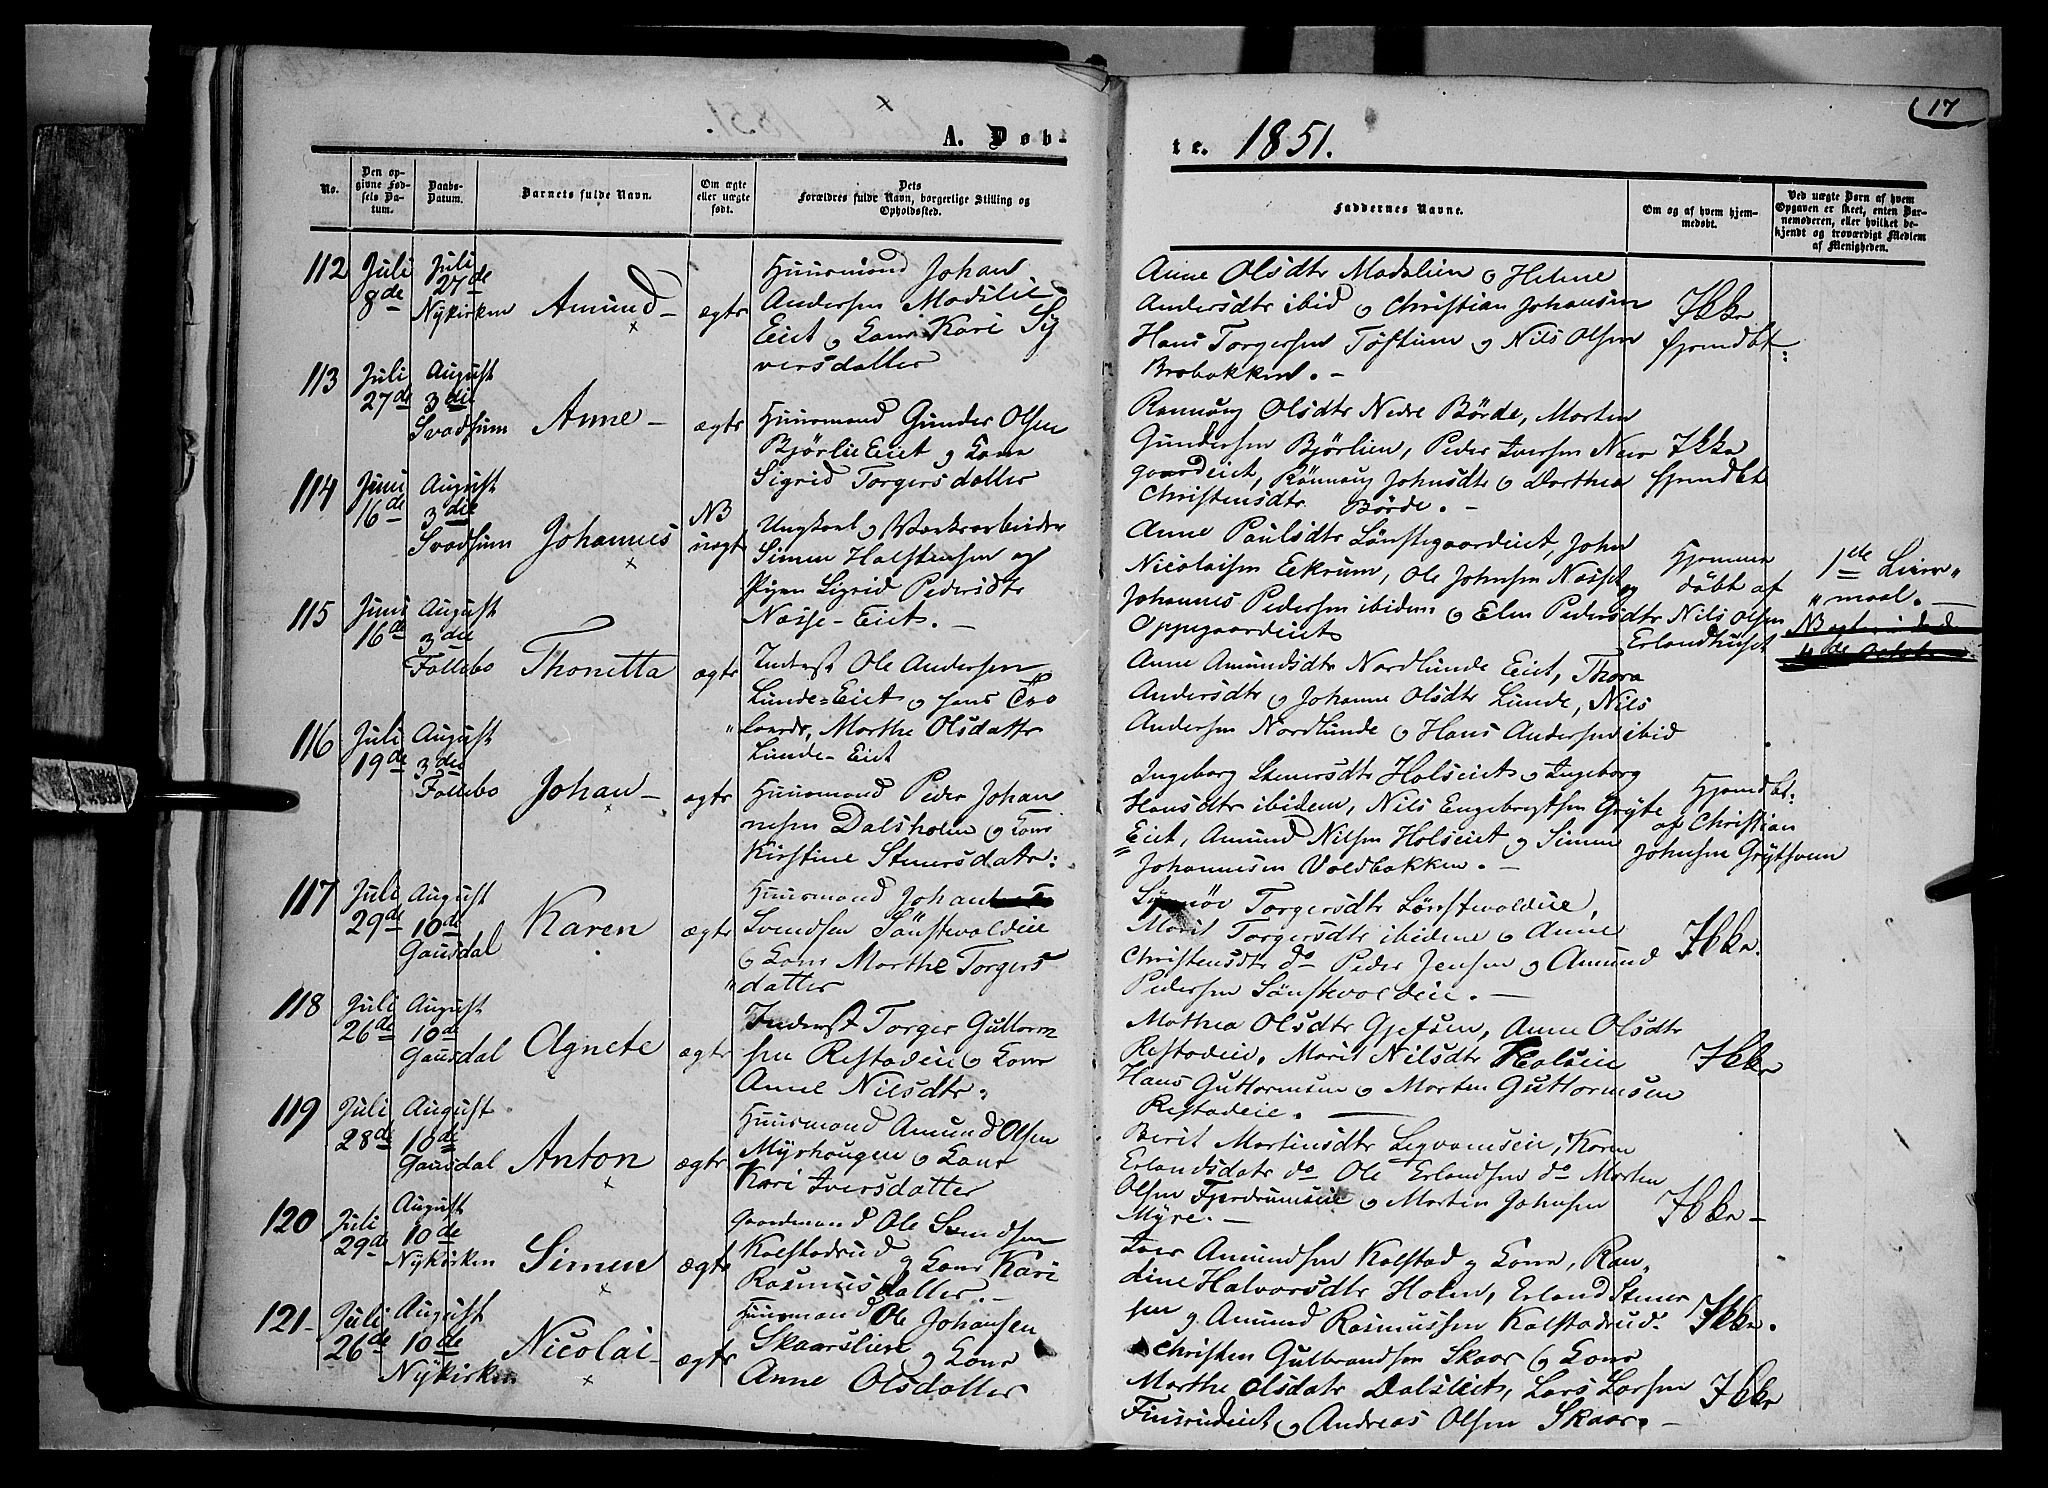 17
A. Døb-
te. 1851.
No.
Den opgivne Fødsels Datum.
Daabs-Datum.
Barnets fulde Navn.
Om ægte eller uægte født.
Dets Forældres fulde Navn, borgerlige Stilling og Opholdssted.
Faddernes Navne.
Om og af hvem hjemmedøbt.
Ved uægte Børn af hvem Opgaven er skeet, enten Barnemoderen, eller hvilket bekjendt og troværdigt Medlem af Menigheden.
112 Juli Juli
8de 27de
Nykirken Amund ægte
Huusmand Johan
Andersen Madslie
Eiet og Kone Kari Sy
versdatter
Anne Olsdtr Madslien og Helene
Andersdtr ibid og Christian Johansen
Hans Torgersen Töftum og Nils Olsen
Brobakken. -
Ikke
hjemdbt:
113 Juli August
27de 3die
Svadsum Anne - ægte
Huusmand Gunder Olsen
Bjørlie Eiet og Kone
Sigrid Torgersdatter
Rannoug Olsdtr Nedre Börde, Morten
Gundersen Bjørlien, Peder Iversen
gaardeiet, Rönnoug Johnsdtr og Dorthea
Christensdtr Börde. -
Ikke
hjemdbt
114 Juni August
16de 3die
Svadsum Johannes NB
uægte
Ungkarl og
Simen Halstensen og
Pigen Sigrid Pedersdtr
Næsse-Eiet. -
Anne Paulsdtr Lönstegaardeiet, John
Nicolaisen Eekrum, Ole Johnsen Næsset og
Johannes Pedersen ibidem og Elen Pedersdtr
Oppegaardeiet
Hjemme
döbt af
Nils Olsen
Erlandhuset
1de Leier-
maal. -
115 Juni August
16de 3die
Follebo Thonetta ægte
Inderst Ole Andersen
Lunde-Eiet og hans Tro
lovede, Marthe Olsdattr
Lunde-Eiet
Anne Amundsdtr Nordlunde Eiet, Thora
Andersdtr og Johanne Olsdtr Lunde, Nils
Andersen Nordlunde og Hans Andersen ibid
116 Juli August
19de 3die
Follebo Johan - ægte
Huusmand Peder Johan
nesen Dalsholen og Kone
Kirstine Stenersdatr:
Ingeborg Stenersdtr Holseiet og Ingeborg
Hansdtr ibidem, Nils Engebregtsen Gryte
Eiet, Amund Nilsen Holseiet og Simen
Johannesen Voldbakken. -
Hjemdbt:
af Christian
Johnsen Grythsveen
117 Juli August
29de 10de
Gausdal Karen ægte
Huusmand Johan
Svendsen Sönstevoldeie
og Kone Marthe Torgers
datter
Synnöv Torgersdtr Lönstevoldeie,
Marit Torgersdtr ibidem og Anne
Christensdtr do Peder Jensen og Amund
Pedersen Sönstevoldeie. -
Ikke.
118 Juli August
26de 10de
Gausdal Agnete ægte
Inderst Torger Guttorm
sen Restadeie og Kone
Anne Nilsdtr.
Mathea Olsdtr Gjefsen, Anne Olsdtr
Restadeie, Marit Nilsdtr Holseie
Hans Guttormsen og Morten Guttormsen
Restadeie.
Ikke
119 Juli August
28de 10de
Gausdal Anton ægte
Huusmand Amund Olsen
Myrhaugen og Kone
Kari Iversdatter
Berit Martinsdtr Segvamseie, Karen
Erlandsdatr do Ole Erlandsen do Morten
Olsen Fjerdrumseie og Morten Johnsen
Myre. -
Ikke -
120 Juli August
29de 10de
Nykirken Simen ægte
Gaardmand Ole Svendsen
Kalstadrud og Kone Kari
Rasmusdatter. -
Iver Amundsen Kalstad og Kone, Ran-
dine Halvorsdtr Holen, Erland Stener
sen og Amund Rasmussen Kalstadrud.
Ikke.
121 Juli August
26de 10de
Nykirken Nicolai - ægte
Huusmand Ole Johansen
Skaarslien og Kone
Anne Olsdatter
Christen Gulbrandsen Skaar og Kone
Marthe Olsdatr Dalseiet, Lars Larsen
Finsrudeiet og Andreas Olsen Skaar. -
Ikke